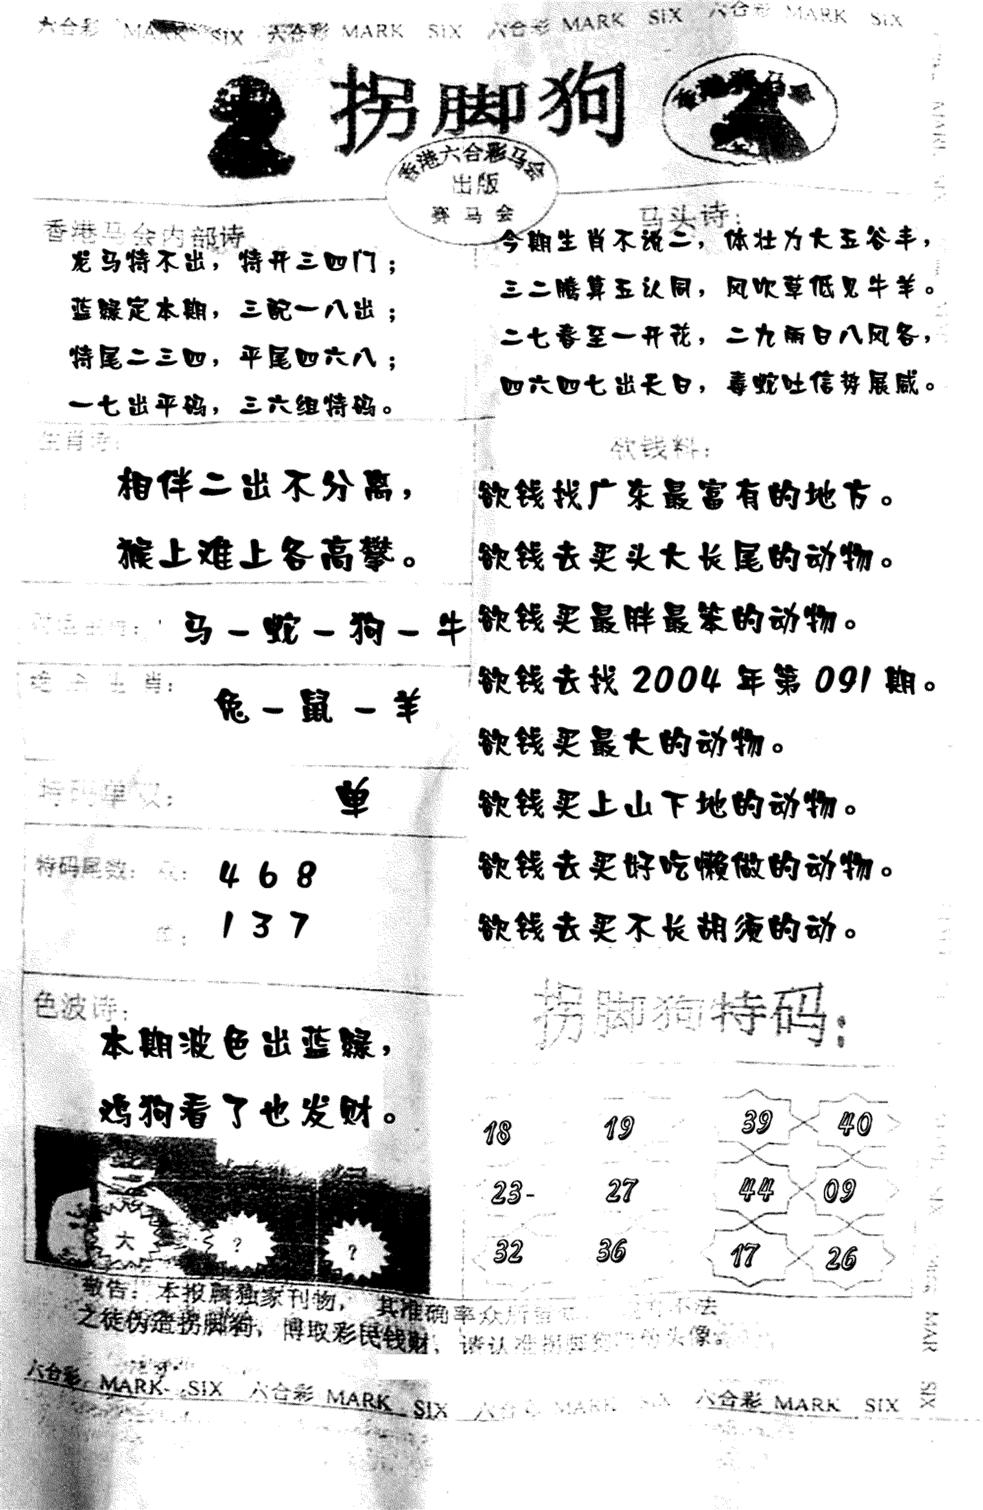 六合彩 MARK SIX 六合彩 MARK SIX 六合彩 MARK SIX 六合彩 MARK SIX
拐脚狗
香港赛马会
香港六合彩马会
出版
赛马会
香港马会内部诗
龙马特不出，特开三四门；
蓝绿定本期，三配一八出；
特尾二三四，平尾四六八；
一七出平码，三六组特码。
马头诗：
今期生肖不说二，体壮力大五谷丰，
三二腾算五认同，风吹草低见牛羊。
二七春至一开花，二九雨日八风各，
四六四七出天日，毒蛇吐信势展威。
生肖诗：
相伴二出不分离，
猴上难上各高攀。
马－蛇－狗－牛
绝杀生肖：
兔－鼠－羊
特码单双：
单
特码尾数：双：468
单：137
色波诗：
本期波色出蓝绿，
鸡狗看了也发财。
大 ? ?
欲钱料：
欲钱找广东最富有的地方。
欲钱去买头大长尾的动物。
欲钱买最胖最笨的动物。
欲钱去找2004年第091期。
欲钱买最大的动物。
欲钱买上山下地的动物。
欲钱去买好吃懒做的动物。
欲钱去买不长胡须的动。
拐脚狗特码：
18 19 39 40
23- 27 44 09
32 36 17 26
敬告：本报属独家刊物，其准确率众所 不法
之徒伪造拐脚狗，博取彩民钱财，请认准拐脚狗 头像。
六合彩 MARK SIX 六合彩 MARK SIX 六合彩 MARK SIX 六合彩 MARK SIX
MARK SIX